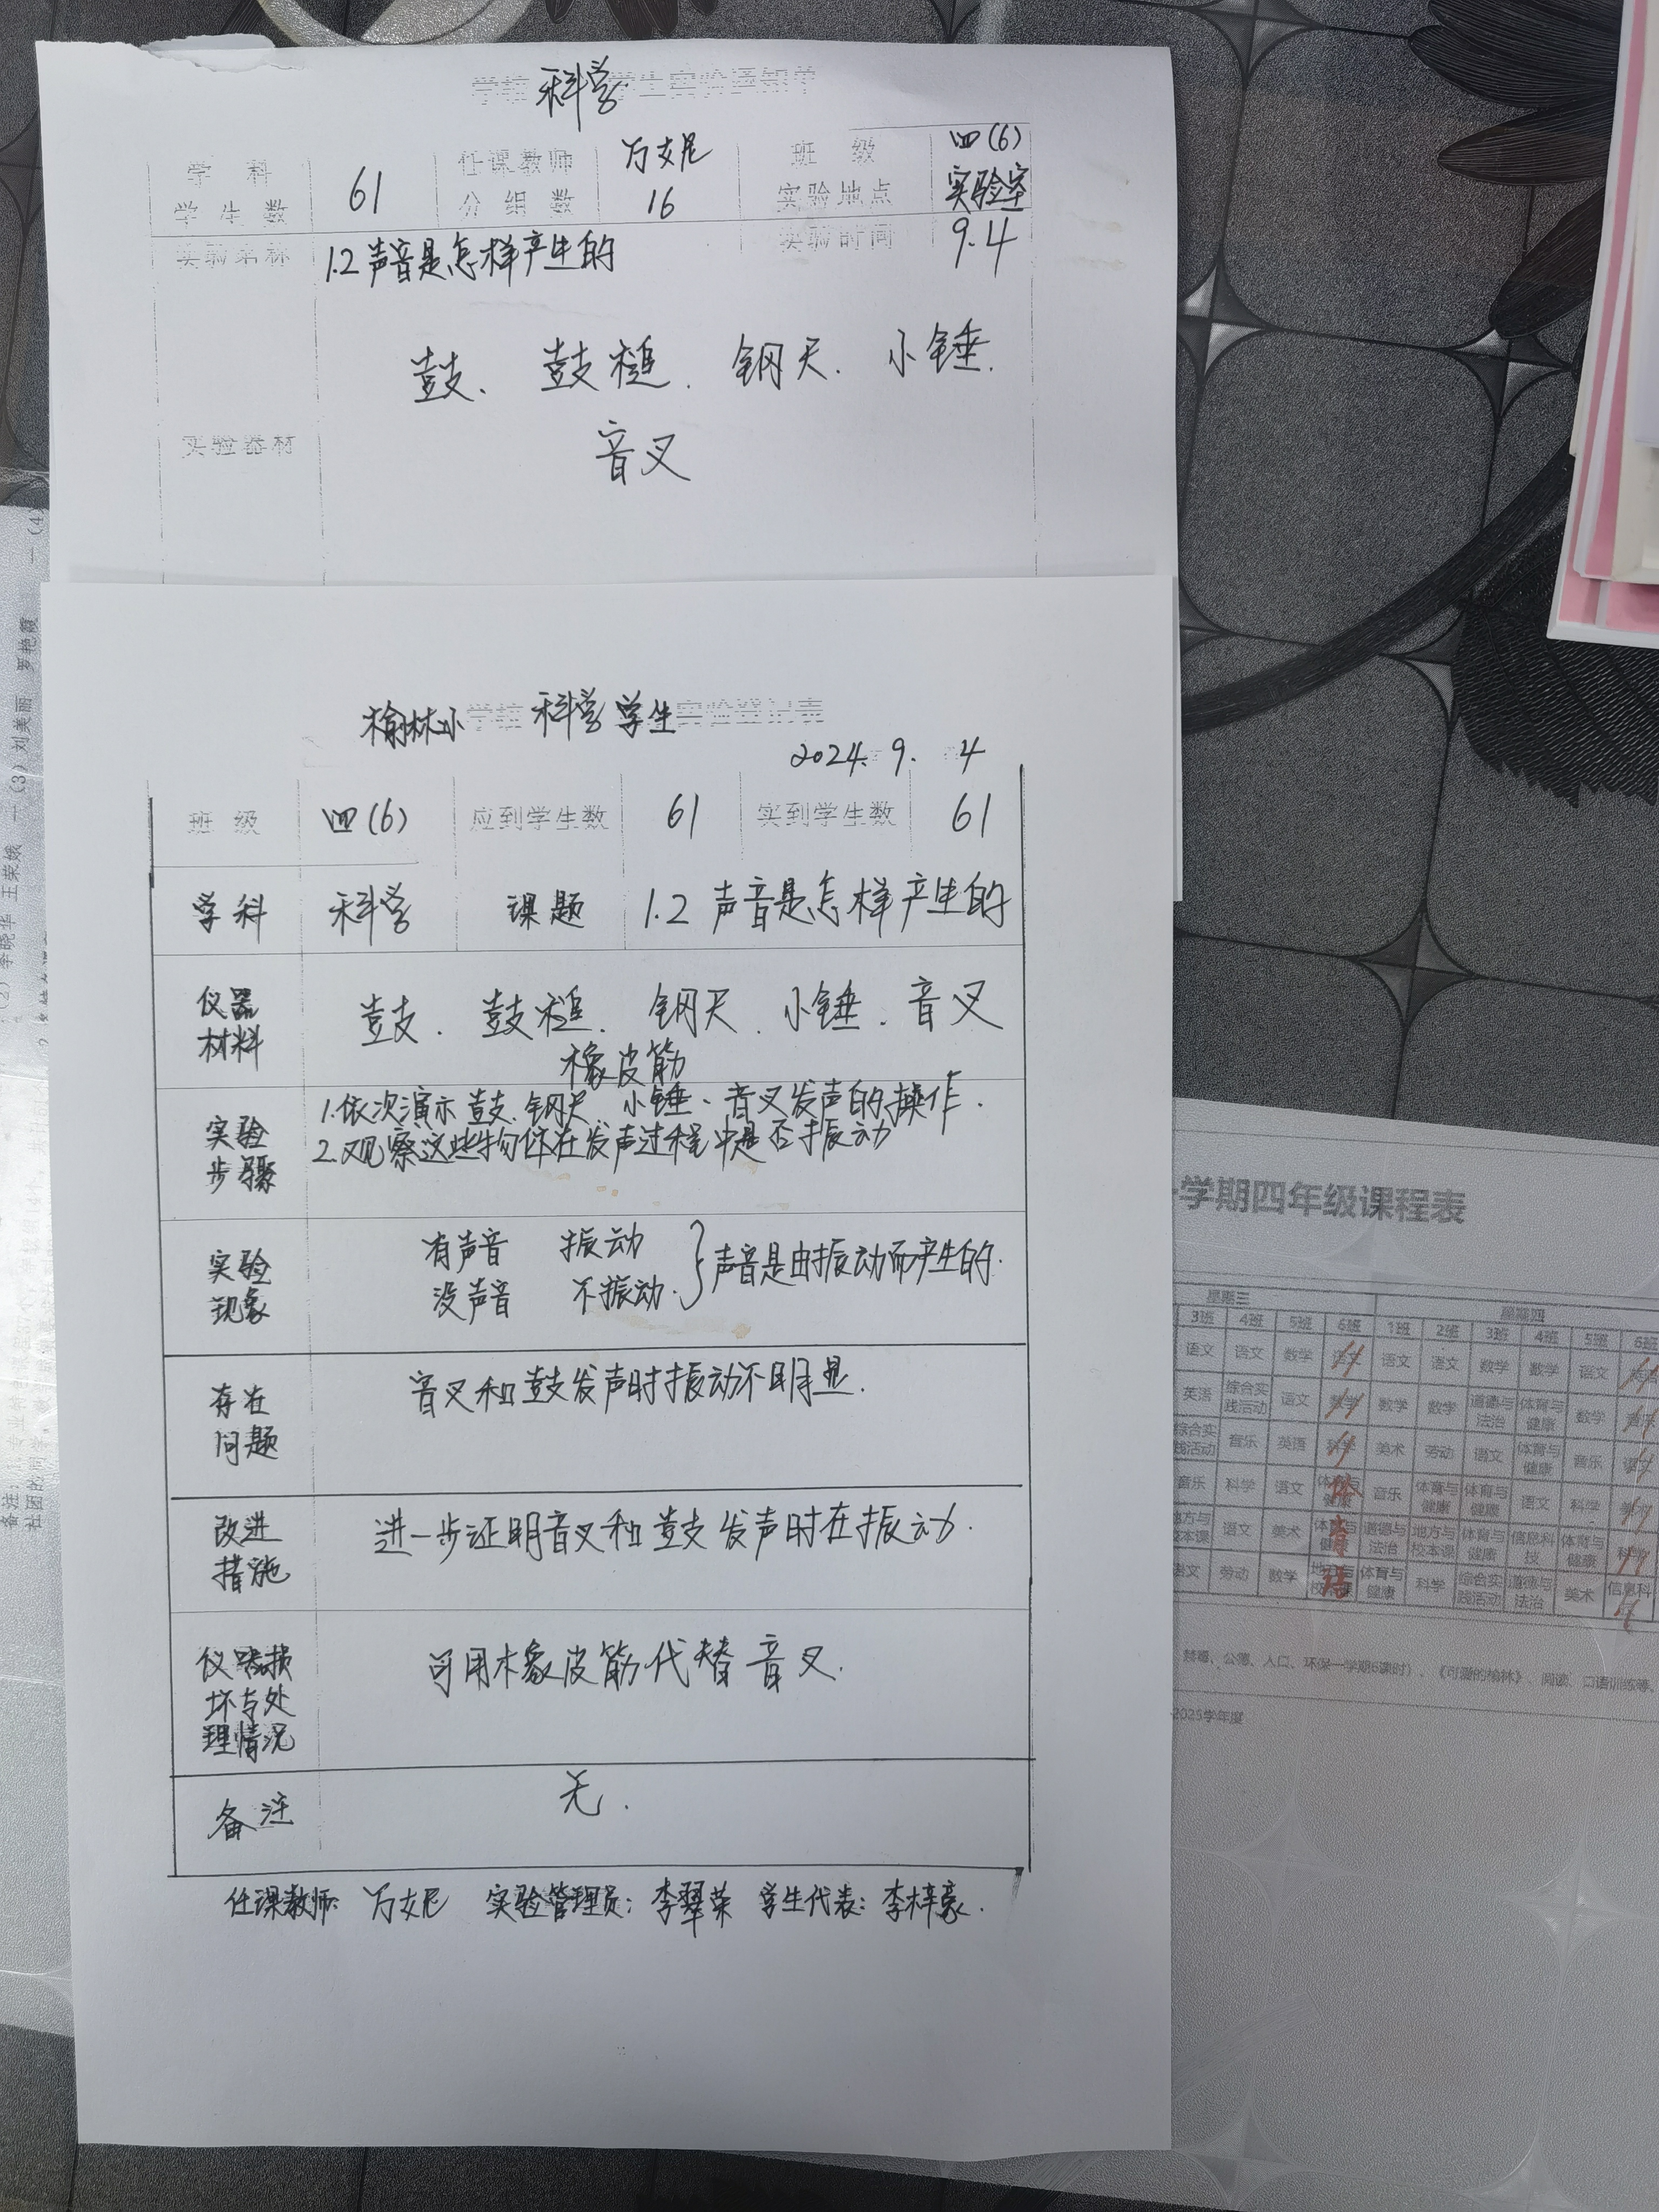 学校 科学 学生实验通知单
学 科 任课教师 班 级 四(6)
学生数 61 分组数 16 实验地点 实验室
实验名称 1.2 声音是怎样产生的 实验时间 9.4
实验器材
鼓、鼓槌、钢尺、小锤、
音叉
榆林小学校 科学 学生实验登记表
2024.9.4
班 级 四(6) 应到学生数 61 实到学生数 61
学科 科学 课题 1.2 声音是怎样产生的
仪器材料
鼓、鼓槌、钢尺、小锤、音叉
橡皮筋
实验步骤
1.依次演示鼓、钢尺、小锤、音叉发声的操作.
2.观察这些物体在发声过程中是否振动
实验现象
有声音 振动
没声音 不振动.
}声音是由振动而产生的.
存在问题
音叉和鼓发声时振动不明显.
改进措施
进一步证明音叉和鼓发声时在振动.
仪器损坏与处理情况
可用橡皮筋代替音叉.
备注
无.
任课教师: 实验管理员: 李翠荣 学生代表: 李梓豪.
学期四年级课程表
星期三 星期四
3班 4班 5班 6班 1班 2班 3班 4班 5班 6班
语文 语文 数学 语文 语文 语文 数学 数学 语文
英语 综合实践活动 语文 数学 数学 数学 道德与法治 体育与健康 数学 音乐
综合实践活动 音乐 英语 科学 美术 劳动 语文 体育与健康 音乐 语文
音乐 科学 语文 体育与健康 音乐 体育与健康 体育与健康 语文 科学
地方与校本课 语文 美术 体育与健康 道德与法治 地方与校本课 体育与健康 信息科技 体育与健康 科学
语文 劳动 数学 地方与校本课 体育与健康 科学 综合实践活动 道德与法治 美术 信息科技
禁毒、公德、人口、环保一学期6课时)、《可爱的榆林》、阅读、口语训练等、
2025学年度
(2)李晓华 王荣娥 一(3)刘美丽 罗艳霞 一(4)